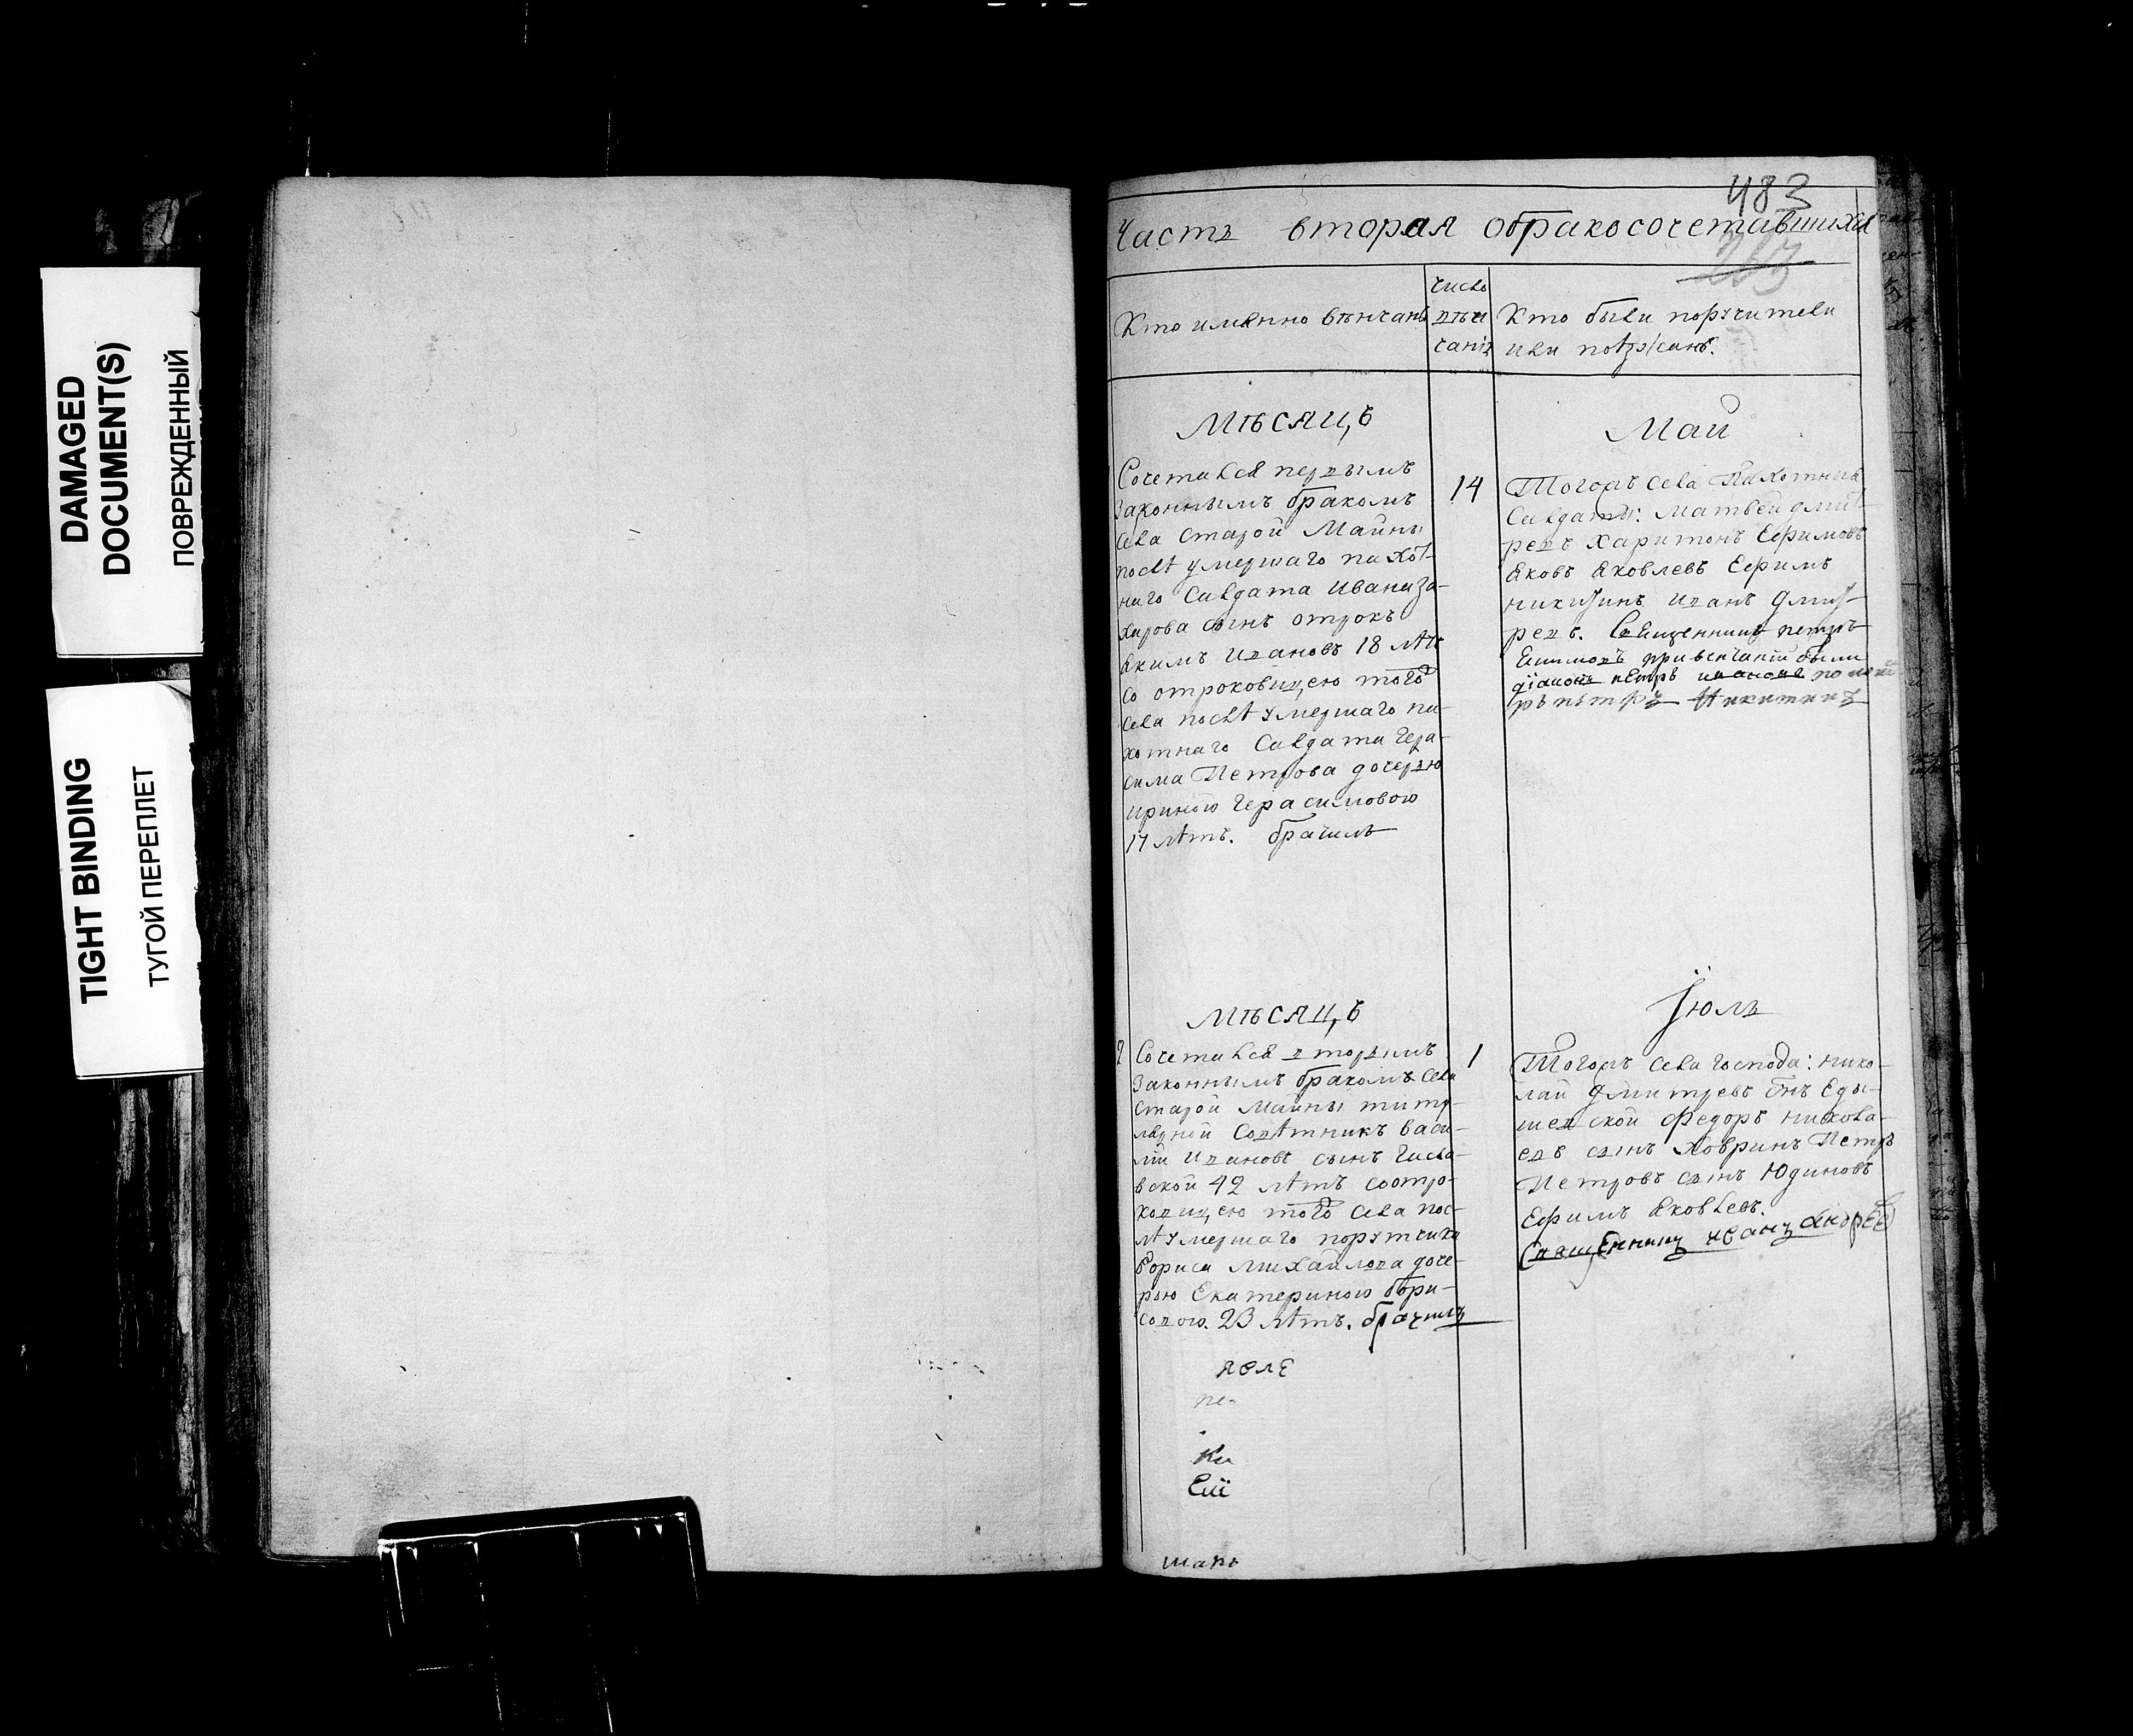 DAMAGED
DOCUMENT(S)
ПОВРЕЖДЕННЫЙ
TIGHT BINDING
ТУГОЙ ПЕРЕПЛЕТ
483
Часть вторая обракосочетавшихся
Кто именно вѣнчанъ
число
вѣн
чанiя
Кто были поручители
или
Мѣсяцъ
Май
Сочетался первымъ
законнымъ бракомъ
села старой Майны
послѣ умершаго пахот-
наго салдата Ивана За-
харова сынъ отрокъ
Акимъ Ивановъ 18 лѣтъ
со отроковицею того
села послѣ умершаго па-
хотнаго салдата Гера-
сима Петрова дочерью
ириною Герасимовою
17 лѣтъ.
14
Тогожъ села Пахотныя
Салдаты: Матвей дмит-
ревъ Харитонъ Ефимовъ
Яковъ Яковлевъ Ефимъ
никитинъ иванъ Дмит-
ревъ. Священникъ петръ
привенчанiи были
дiаконъ петръ ивановъ
петръ Никитинъ
Мѣсяцъ
Iюль
2
Сочетался вторымъ
законнымъ бракомъ села
старой Майны титу-
лярной совѣтникъ васи-
лiи Ивановъ сынъ
42 лѣтъ соотро-
ковицею того села пос-
лѣ умершаго порутчика
Бориса Михайлова доче-
рью Екатериною Бори-
совою. 23 лѣтъ.
1
Тогожъ села господа: нико-
лай Дмитревъ снъ Еды-
шевской Федоръ никола-
евъ сынъ Ховринъ Петръ
Петровъ сынъ Юдиновъ
Ефимъ Яковлевъ.
Священникъ иванъ Андрѣев